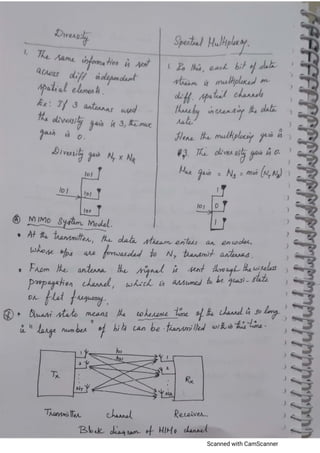 Diversity
1. The same information is sent
across diff independent
spatial elements.
Ex: If 3 antennas used
the diversity gain is 3, the mux
gain is 0.
Diversity gain NT x NR
101
101
101
101
Spatial Multiplexing.
1. In this, each bit of data
stream is multiplexed on
diff. spatial channels
thereby increasing the data
rate.
Here the multiplexing gain is
3. The diversity gain is 0.
Mux gain = Ns = min (NT, NR)
101
1
0
1
MIMO System Model.
At the transmitter, the data stream enters an encoder,
whose o/ps are forwarded to NT transmit antennas.
From the antenna the signal is sent through the wireless
propagation channel, which is assumed to be quasi-static
or flat frequency.
Quasi static means the coherence time of the channel is so long
is "large number" of bits can be transmitted within this time.
Tx
1
2
NT
h11
1
2
NR
Rx
Transmitter channel Receiver
Block diagram of MIMO channel
Scanned with CamScanner